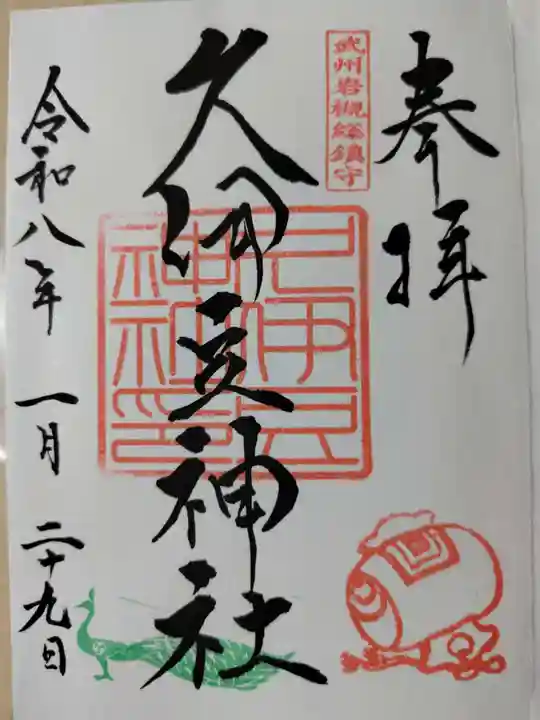 奉拝
武州岩槻総鎮守
久伊豆神社
久伊豆神社印
令和八年 一月 二十九日